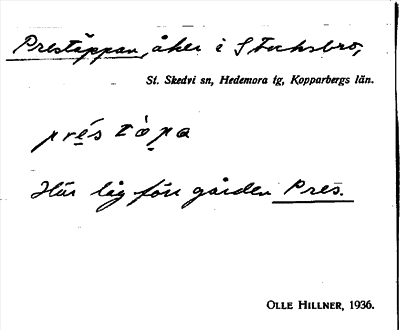 Prestäppan, åker i Stocksbro,
St. Skedvi sn, Hedemora tg, Kopparbergs län.
prɛ́s tɑ̀pa
Här låg förr gården Pres.
OLLE HILLNER, 1936.